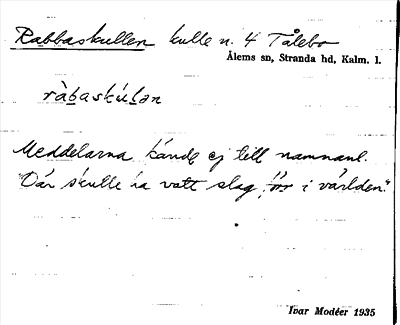 Rabbaskullen kulle n. 4 Tålebo
Ålems sn, Stranda hd, Kalm. l.
ràbaskúlən
Meddelarna kände ej till namnanl.
"Där skulle ha vatt slag förr i världen."
Ivar Modéer 1935